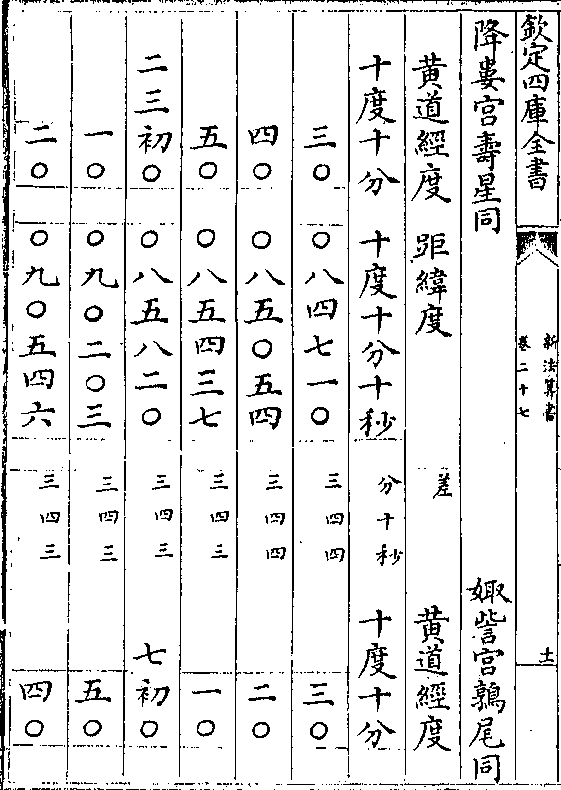 欽定四庫全書
新法算書
卷二十七
十一
降婁宮壽星同
娵訾宮鶉尾同
黃道經度 距緯度 差 黃道經度
十度十分 十度十分十秒 分十秒 十度十分
三〇 〇八四七一〇 三四四 三〇
四〇 〇八五〇五四 三四四 二〇
五〇 〇八五四三七 三四三 一〇
二三初〇 〇八五八二〇 三四三 七初〇
一〇 〇九〇二〇三 三四三 五〇
二〇 〇九〇五四六 三四三 四〇